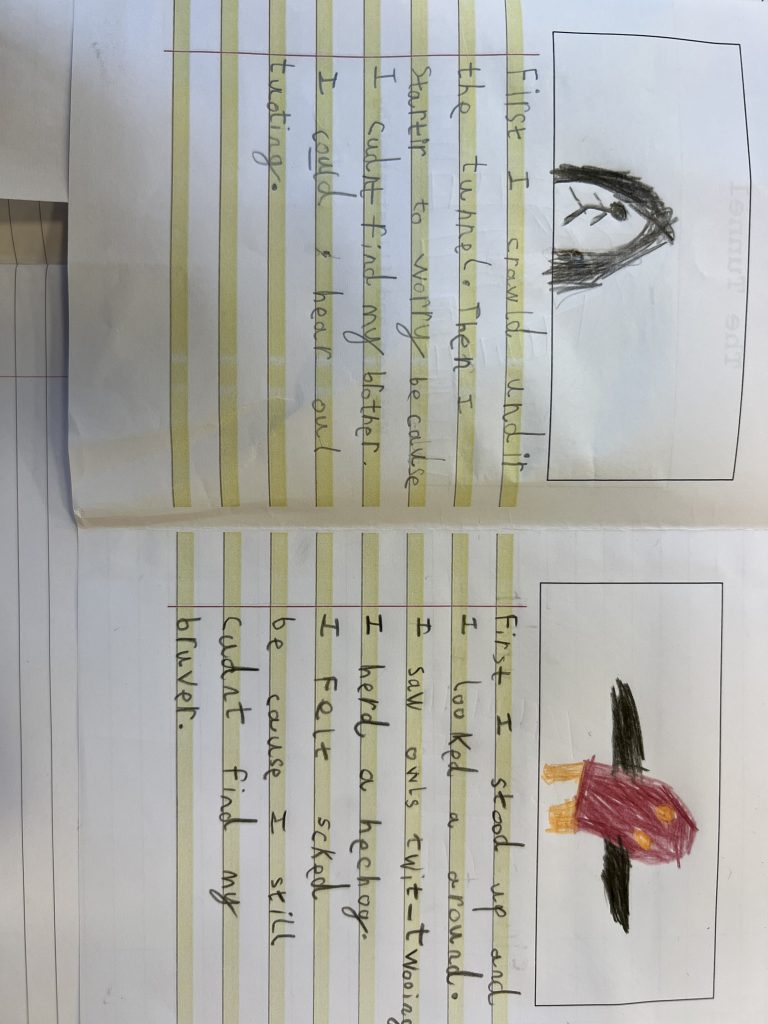 First I crawld undir
the tunnel. Then I
startir to worry be cause
I cudnt find my brother.
I could hear owl
tuoting.
First I stood up and
I looked a around.
I saw owls twit-twooing
I herd a hechog.
I Felt scked
be cause I still
cudnt find my
bruver.
The Tunnel